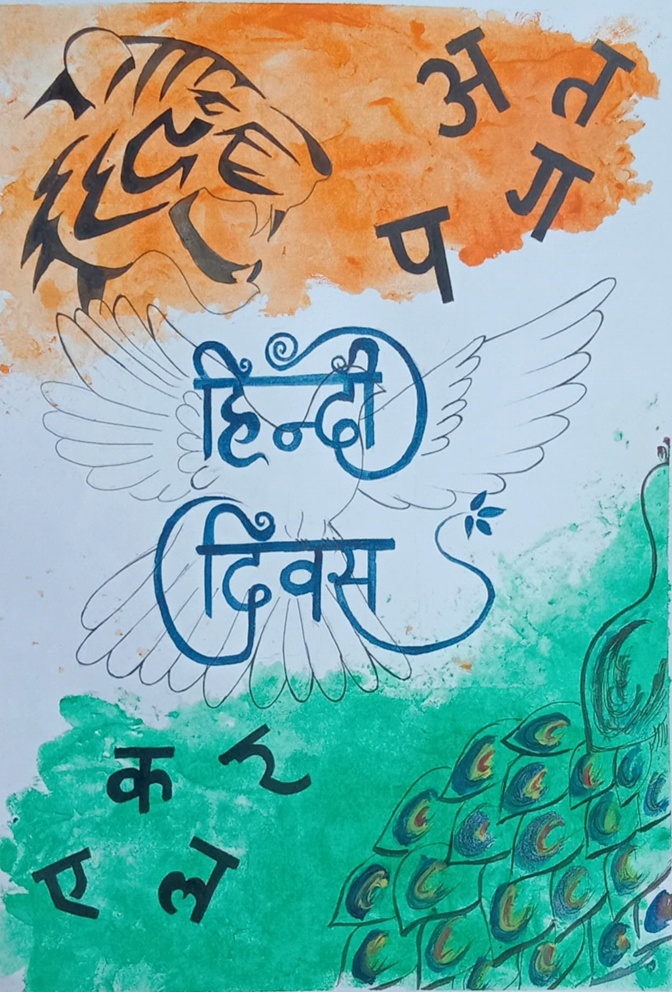 अ त
ग
प
हिन्दी
दिवस
क र
ए ल